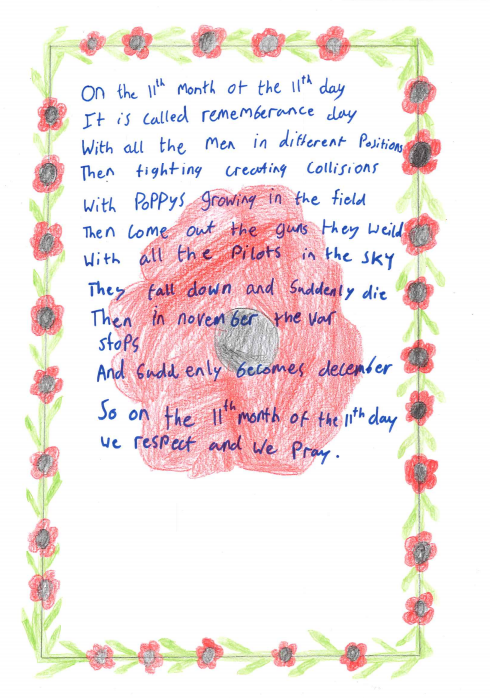 On the 11th month of the 11th day
It is called rememberance day
With all the men in different Positions
Then fighting creating Collisions
With PoPPys growing in the field
Then Come out the guns they weild
With all the Pilots in the sky
They fall down and Suddenly die
Then in november the war
stops
And Sudd enly becomes december
So on the 11th month of the 11th day
we respect and we Pray.